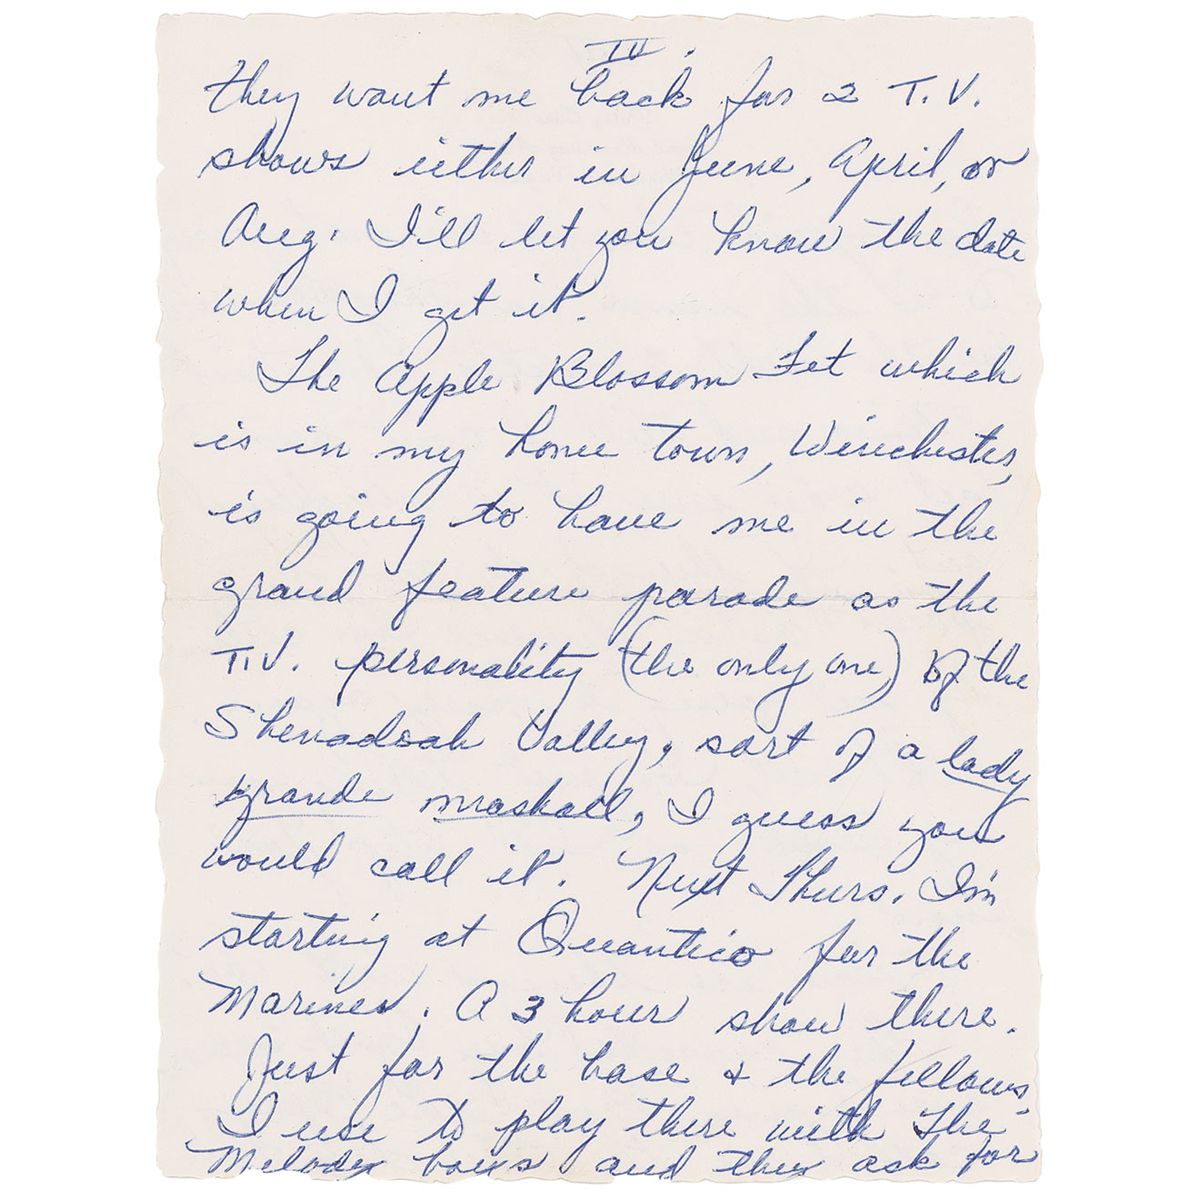 IV.
they want me back for 2 T.V.
shows either in June, April, or
Aug. I'll let you know the date
when I get it.
The Apple Blossom Fet which
is in my home town, Winchester,
is going to have me in the
grand feature parade as the
T.V. personality (the only one) of the
Shenadoah Valley, sort of a lady
grande mrashall, I guess you
would call it. Next Thurs. I'm
starting at Quantico for the
Marines. A 3 hour show there.
Just for the base & the fellows.
I use to play there with the
Melody boys and they ask for